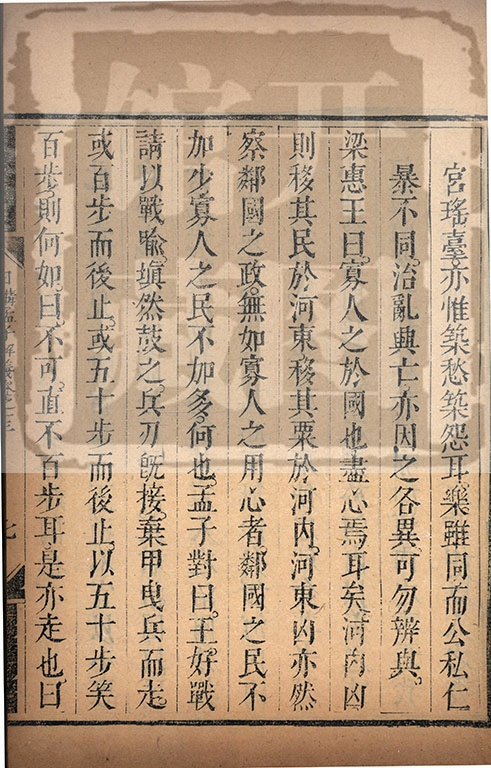 宮瑤臺亦惟築愁築怨耳樂雖同而公私仁
暴不同治亂興亡亦因之各異可勿辨與
梁惠王曰寡人之於國也盡心焉耳矣河內凶
則移其民於河東移其粟於河內河東凶亦然
察鄰國之政無如寡人之用心者鄰國之民不
加少寡人之民不加多何也孟子對曰王好戰
請以戰喻塡然鼓之兵刃旣接棄甲曳兵而走
或百步而後止或五十步而後止以五十步笑
百步則何如曰不可直不百步耳是亦走也曰